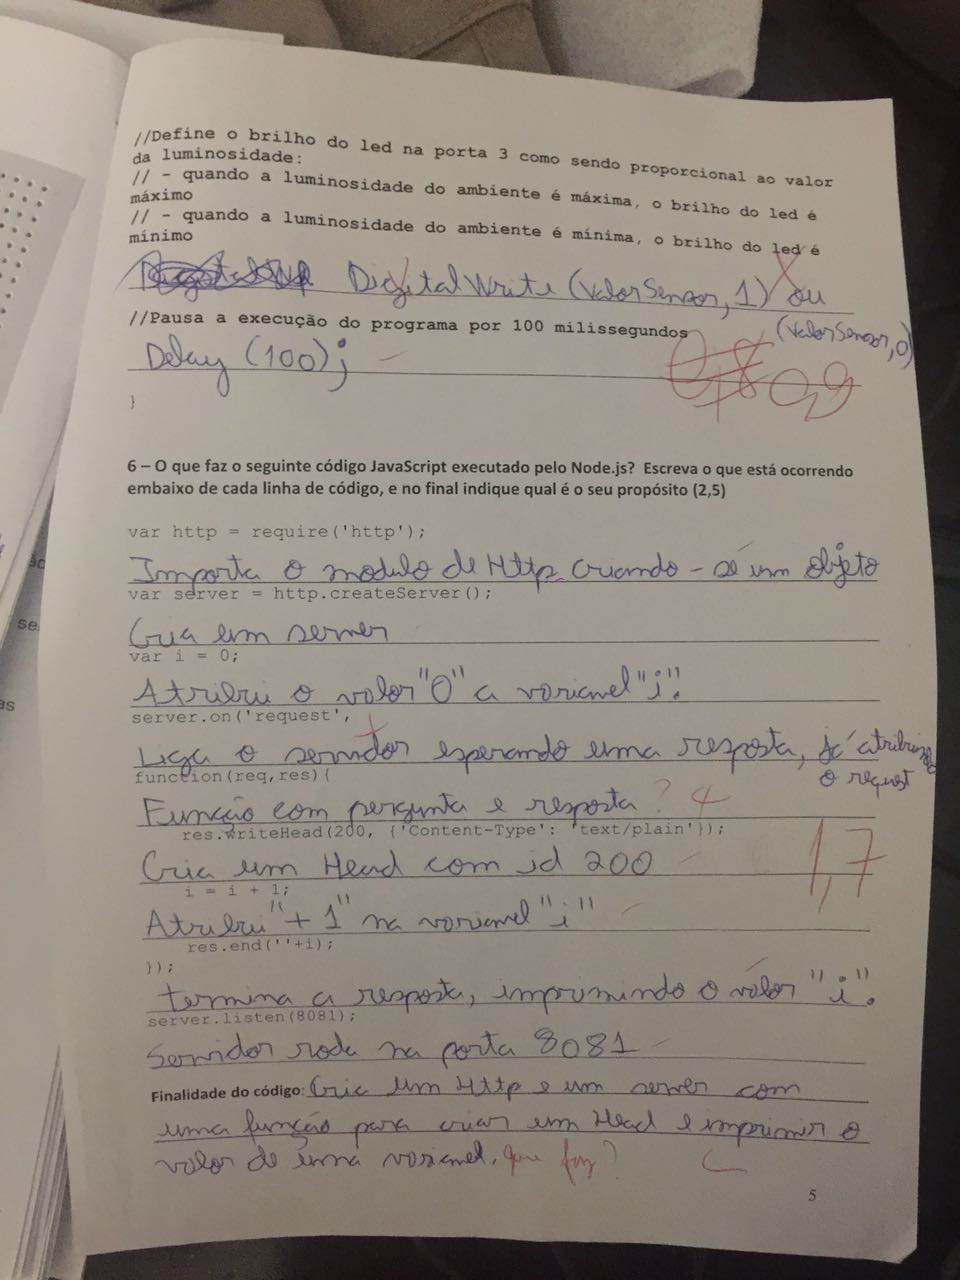 //Define o brilho do led na porta 3 como sendo proporcional ao valor
da luminosidade:
// - quando a luminosidade do ambiente é máxima, o brilho do led é
máximo
// - quando a luminosidade do ambiente é mínima, o brilho do led é
mínimo
DigitalWrite (ValorSensor, 1) ou
(ValorSensor, 0)
//Pausa a execução do programa por 100 milissegundos
Delay (100);
0,9
}
6 – O que faz o seguinte código JavaScript executado pelo Node.js? Escreva o que está ocorrendo
embaixo de cada linha de código, e no final indique qual é o seu propósito (2,5)
var http = require('http');
Importa o modulo de Http criando-se um objeto
var server = http.createServer();
Cria um server
var i = 0;
Atribui o valor "0" a variavel "i".
server.on('request',
Liga o servidor esperando uma resposta, já atribuindo
o request
function(req,res){
Função com pergunta e resposta ?
res.writeHead(200, {'Content-Type': 'text/plain'});
Cria um Head com id 200
1,7
i = i + 1;
Atribui "+ 1" na variavel "i"
res.end(''+i);
});
termina a resposta, imprimindo o valor "i".
server.listen(8081);
Servidor roda na porta 8081
Finalidade do código: Cria um Http e um server com
uma função para criar um Head e imprimir o
valor de uma variavel. que faz?
5